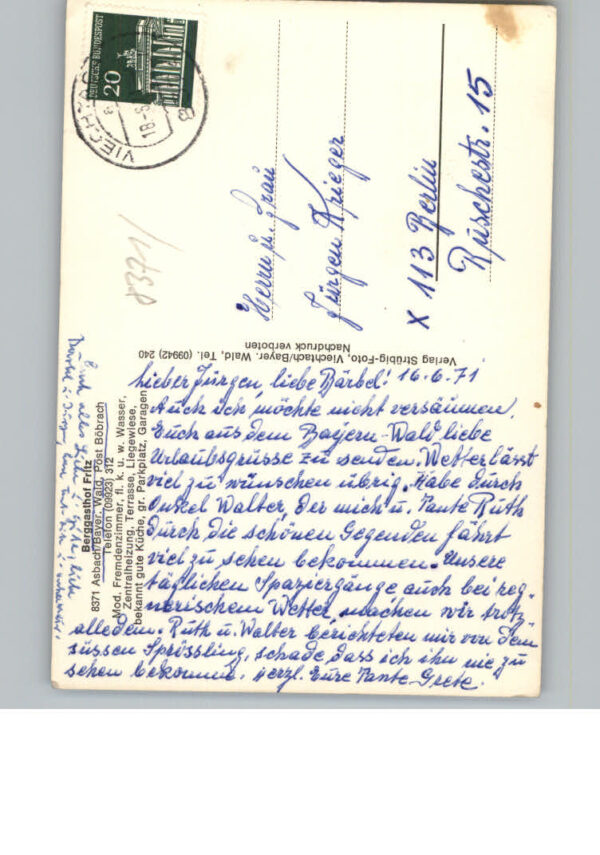 DEUTSCHE BUNDESPOST
20
VIECHT
18.-6
8
8371
Herrn u. Frau
Jürgen Krieger
X 113 Berlin
Ruschestr. 15
Verlag Strübig-Foto, Viechtach/Bayer. Wald, Tel. (09942) 240
Nachdruck verboten
Berggasthof Fritz
8371 Asbach/Bayer. Wald, Post Böbrach
Telefon (09923) 312
Mod. Fremdenzimmer, fl. k. u. w. Wasser,
Zentralheizung, Terrasse, Liegewiese,
bekannt gute Küche, gr. Parkplatz, Garagen
Lieber Jürgen, liebe Bärbel! 16.6.71
Auch ich möchte nicht versäumen,
Euch aus dem Bayern-Wald liebe
Urlaubsgrüsse zu senden. Wetter lässt
viel zu wünschen übrig. Habe durch
Onkel Walter, der mich u. Tante Ruth
durch die schönen Gegenden fährt
viel zu sehen bekommen. Unsere
täglichen Spaziergänge auch bei reg-
nerischem Wetter, machen wir trotz
alledem. Ruth u. Walter berichteten mir von dem
süssen Sprössling, schade, dass ich ihn nie zu
sehen bekomme. Herzl. Eure Tante Grete.
Euch alles Liebe u.